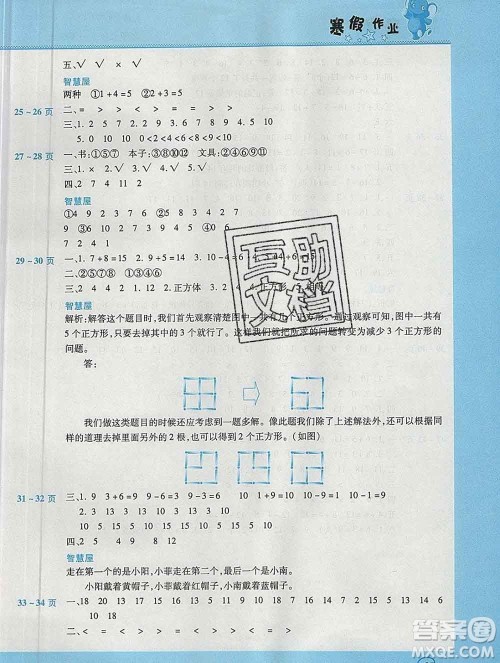 寒假作业
五、√ √ × √
智慧屋
两种 ①1+4=5 ②3+2=5
25-26页 二、= > > < > = > > <
三、1. 2 5 7 9 10 3. 7 8 4 2 6 2
5. 0 10 0<2<4<6<8<10
27-28页 一、书：①⑤⑦ 本子：③⑧⑩⑫ 文具：②④⑥⑨⑪
三、1. × 2. √ 3. √ 4. √
四、2 7 4 11 2
智慧屋
①4 9 12 ②7
9 ③6 10 ④2
7 2 4 1
29-30页 一、1. 7+8=15 2. 9
二、②⑤⑦⑧ ①③④⑥
四、1. 2 2 1 2. 正方体 3.
智慧屋
解析：解答这个题目时，我们首先观察清楚图中一共有几个正方形。通过观察可知，图中一共有
5个正方形，只要去掉其中的3个就行了。所以我们就把所求的问题转变为减少3个正方形的
问题。
答：
我们做这类题目的时候还应考虑到一题多解。像此题我们除了上面的解法外，还可以根据同
样的道理去掉里面另外的2根，也可以得到2个正方形。（如图）
31-32页 三、1. 9 3+6=9 9-3=6 9-6=3 10 1+9=10 10-1=9 10-9=1
2. 13 13 10 2 15 10 8 18 10
10 5 15 15 5 10 10 10 20
四、2 4 5 3 1
智慧屋
走在第一个的是小阳，小菲走在第二个，最后一个是小南。
小阳戴着黄帽子，小菲戴着红帽子，小南戴着蓝帽子。
33-34页 一、18 20 13 16 17 19 14 13 18 15 13 15 14 6
10 18
二、< = > < > = < < > < < >
互助文档
答案圈
MXQE.COM